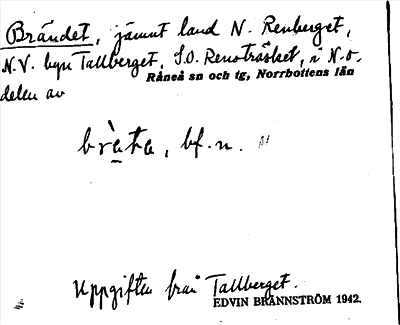 Brändet, jämnt land N. Renberget,
N.V. byn Tallberget, S.O. Renoträsket, i N.O.
Råneå sn och tg, Norrbottens län
delen av
bràta, bf. n.
Uppgiften från Tallberget.
EDVIN BRÄNNSTRÖM 1942.